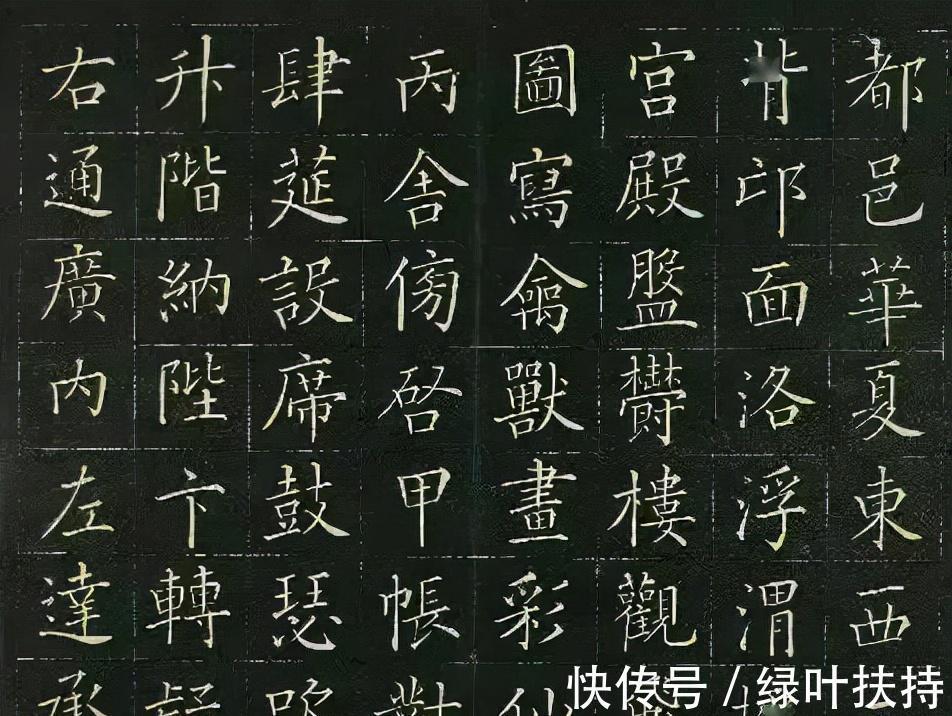 都邑華夏東西
背邙面洛浮渭
宮殿盤鬱樓觀
圖寫禽獸畫彩仙
丙舍傍启甲帳對
肆筵設席鼓瑟吹
升階納陛卞轉疑
右通廣内左達承
快传号/绿叶扶持